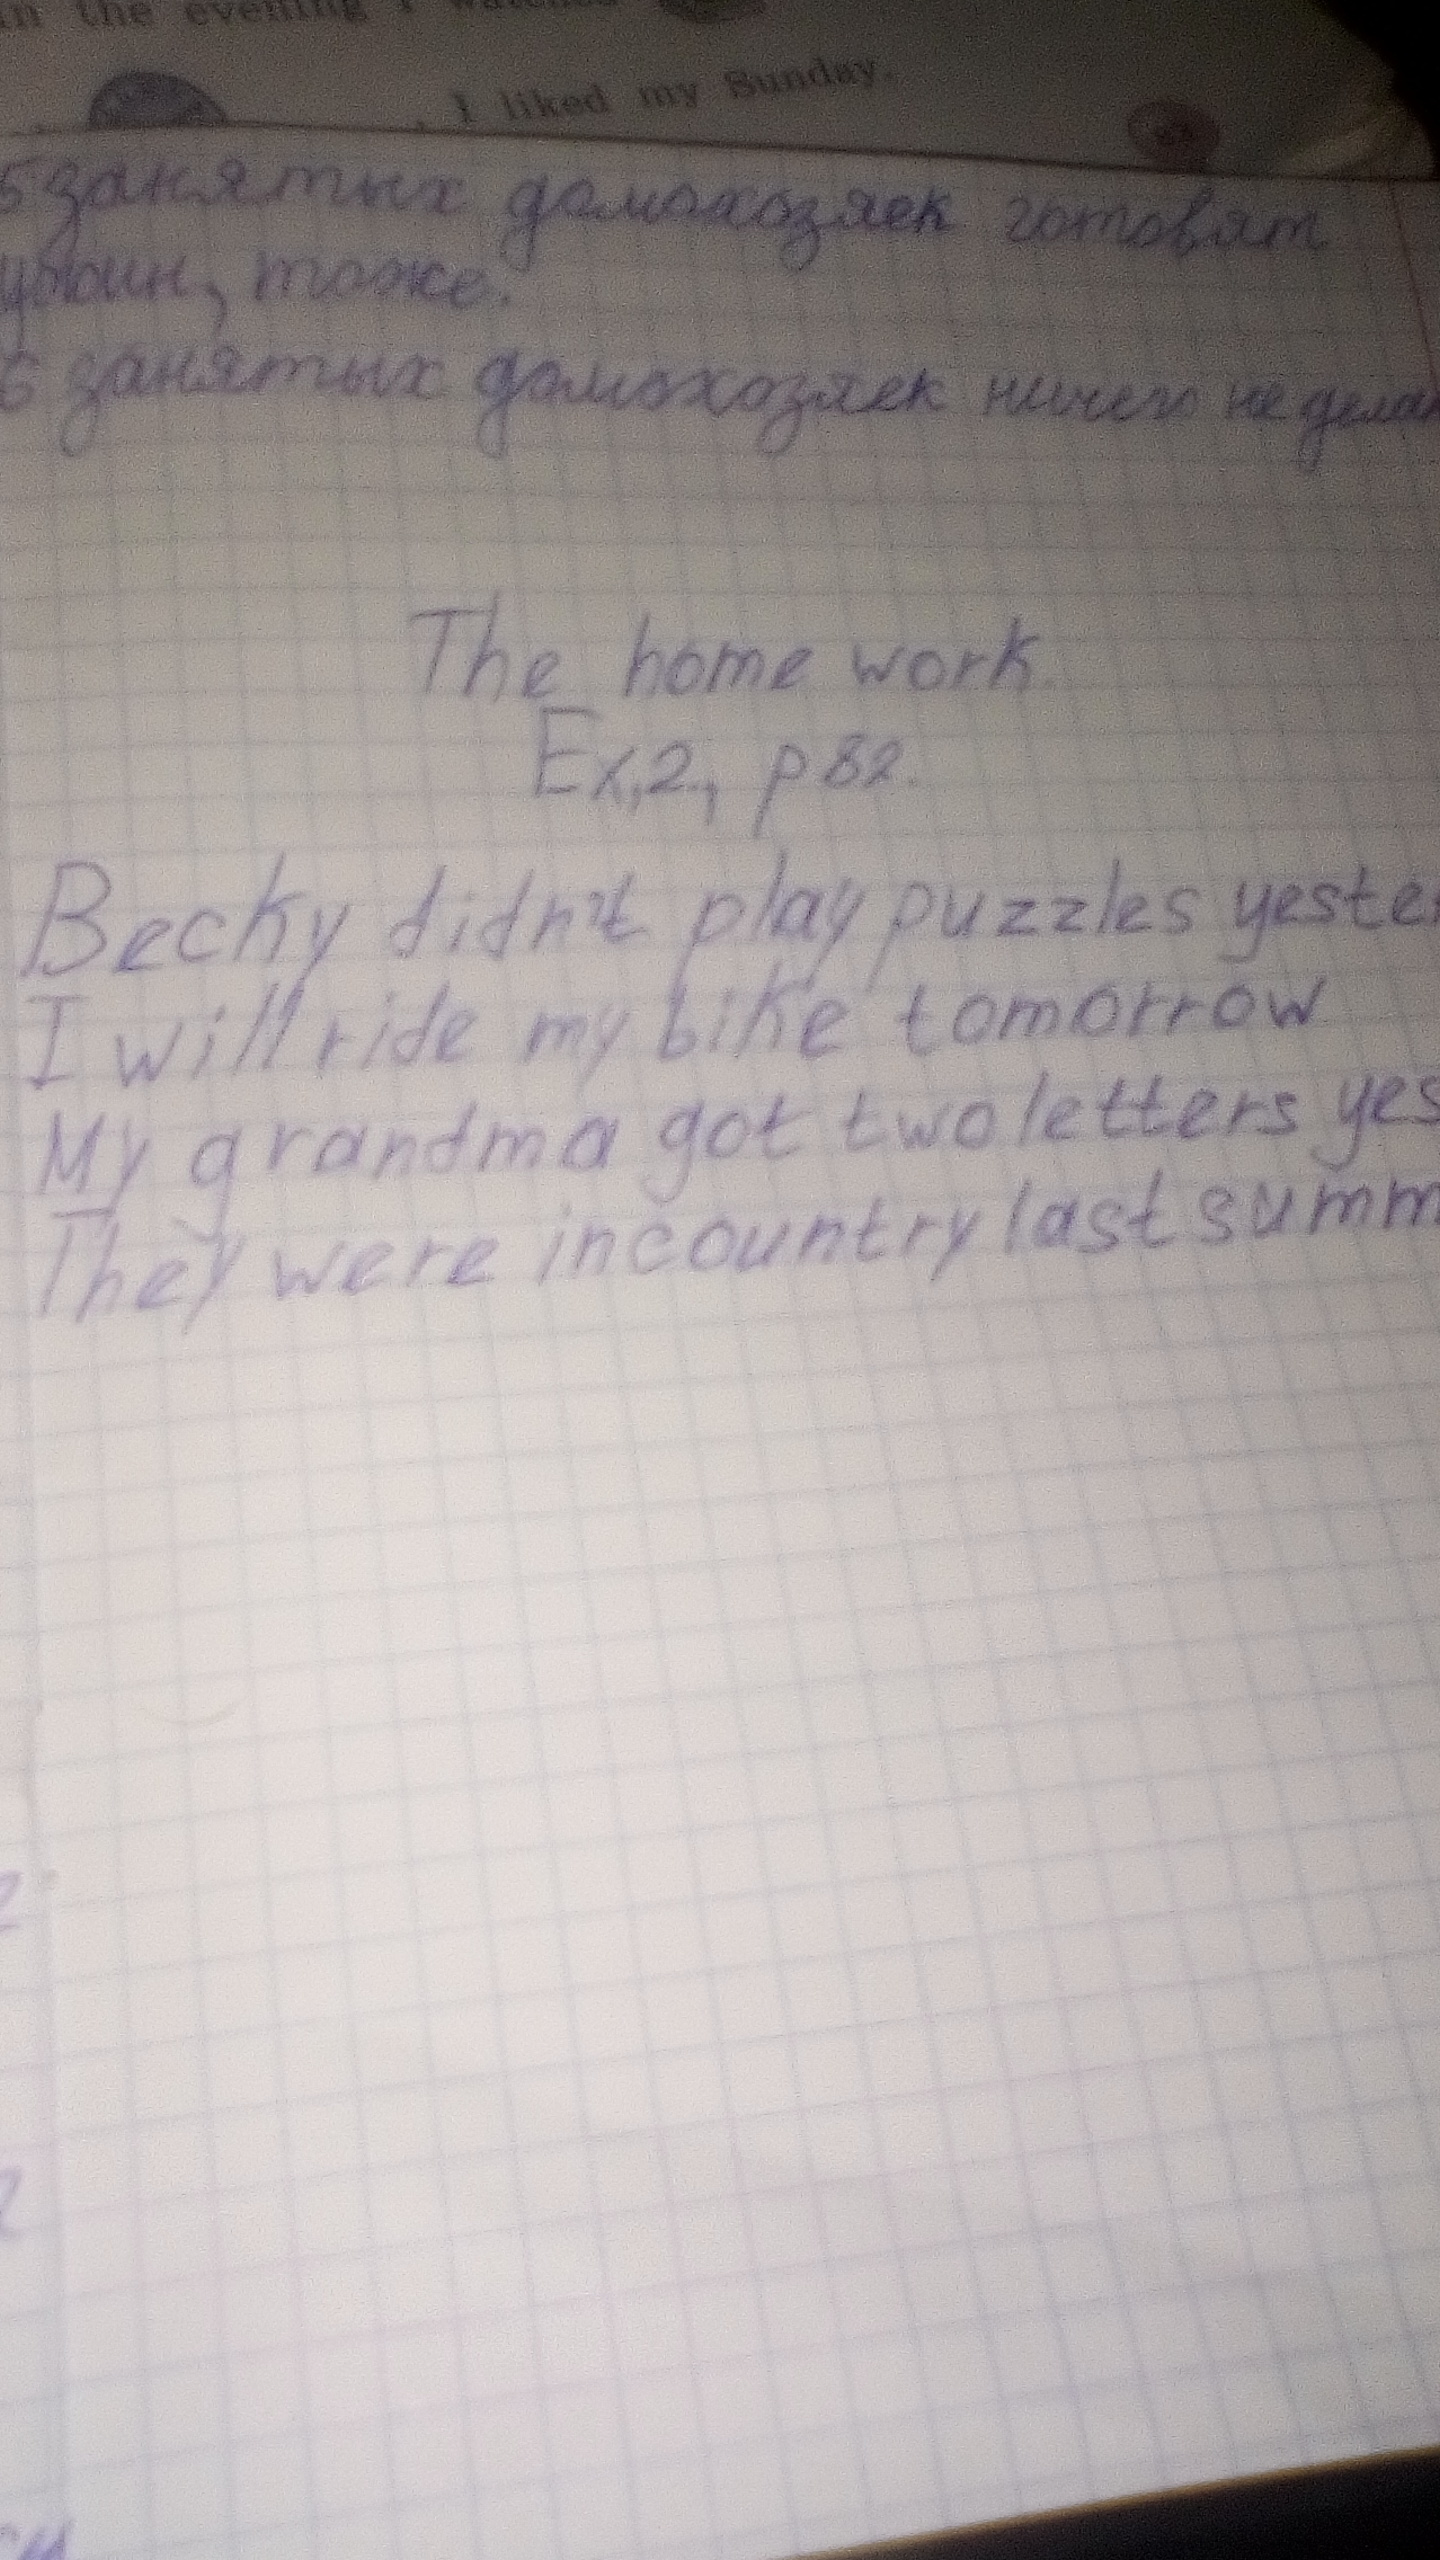 in the evening I watched
I liked my Sunday.
5 занятых домохозяек готовят
ужин, тоже.
6 занятых домохозяек ничего не делаю
The home work.
Ex,2, p 82.
Becky didn't play puzzles yester
I will ride my bike tomorrow
My grandma got two letters yes
They were in country last summ